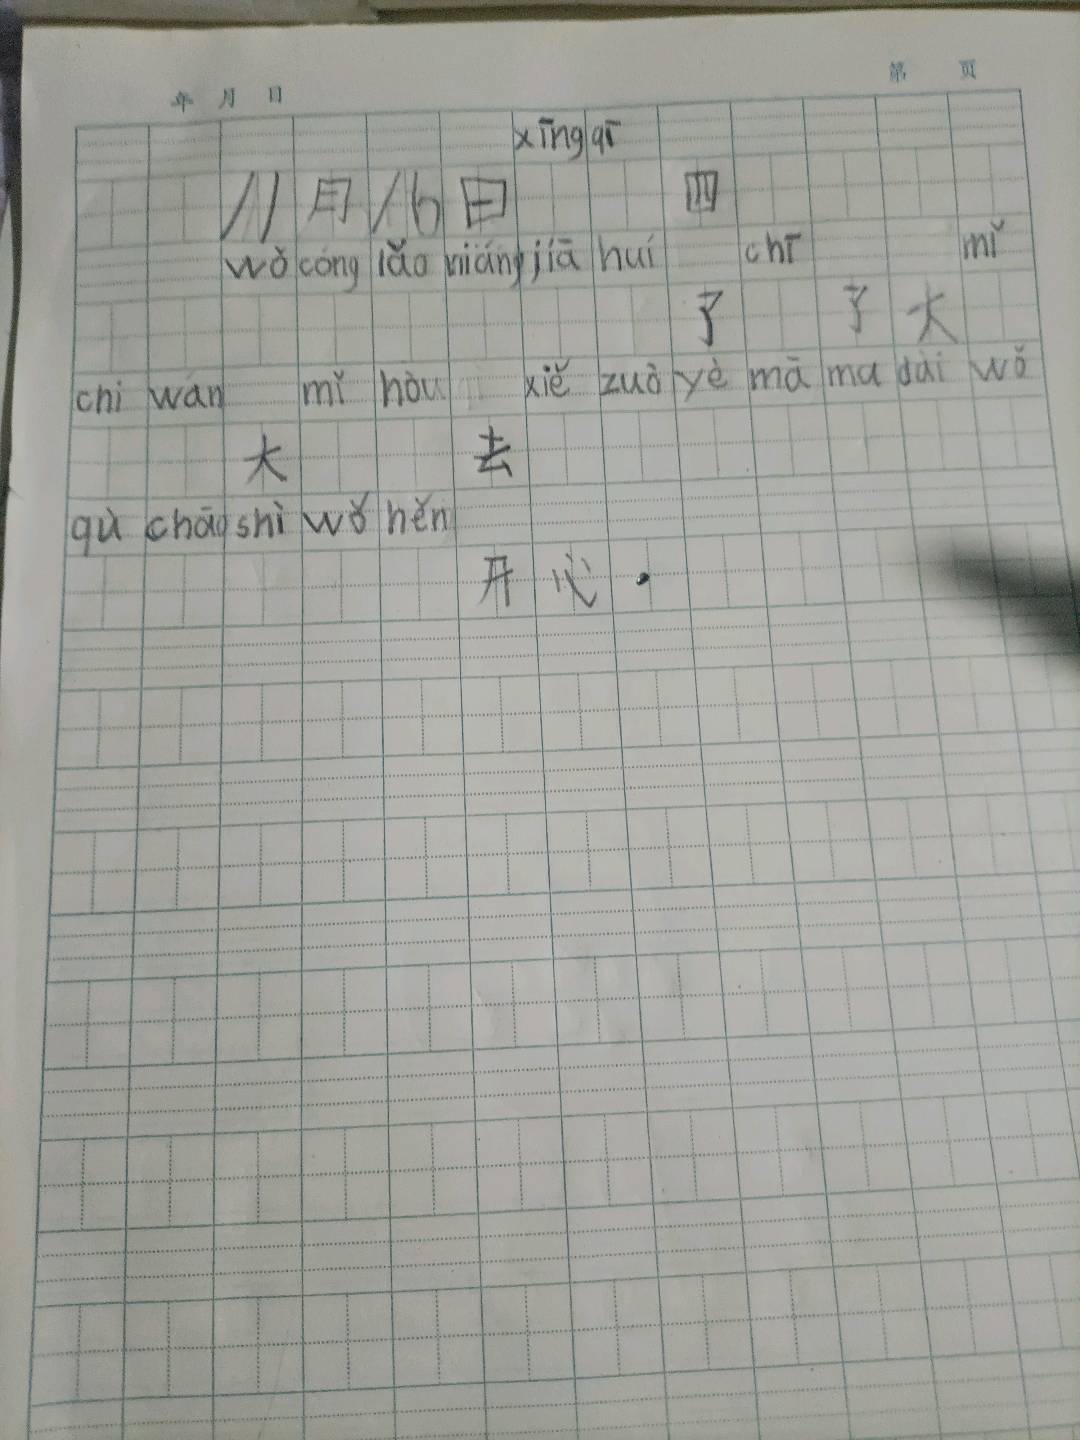 年 月 日 第 页
xīng qī
11月16日 四
wǒ cóng lǎo niáng jiā huí chī mǐ
了 了 大
chī wán mǐ hòu xiě zuò yè mā ma dài wǒ
大 去
qù chāo shì wǒ hěn
开 心 .